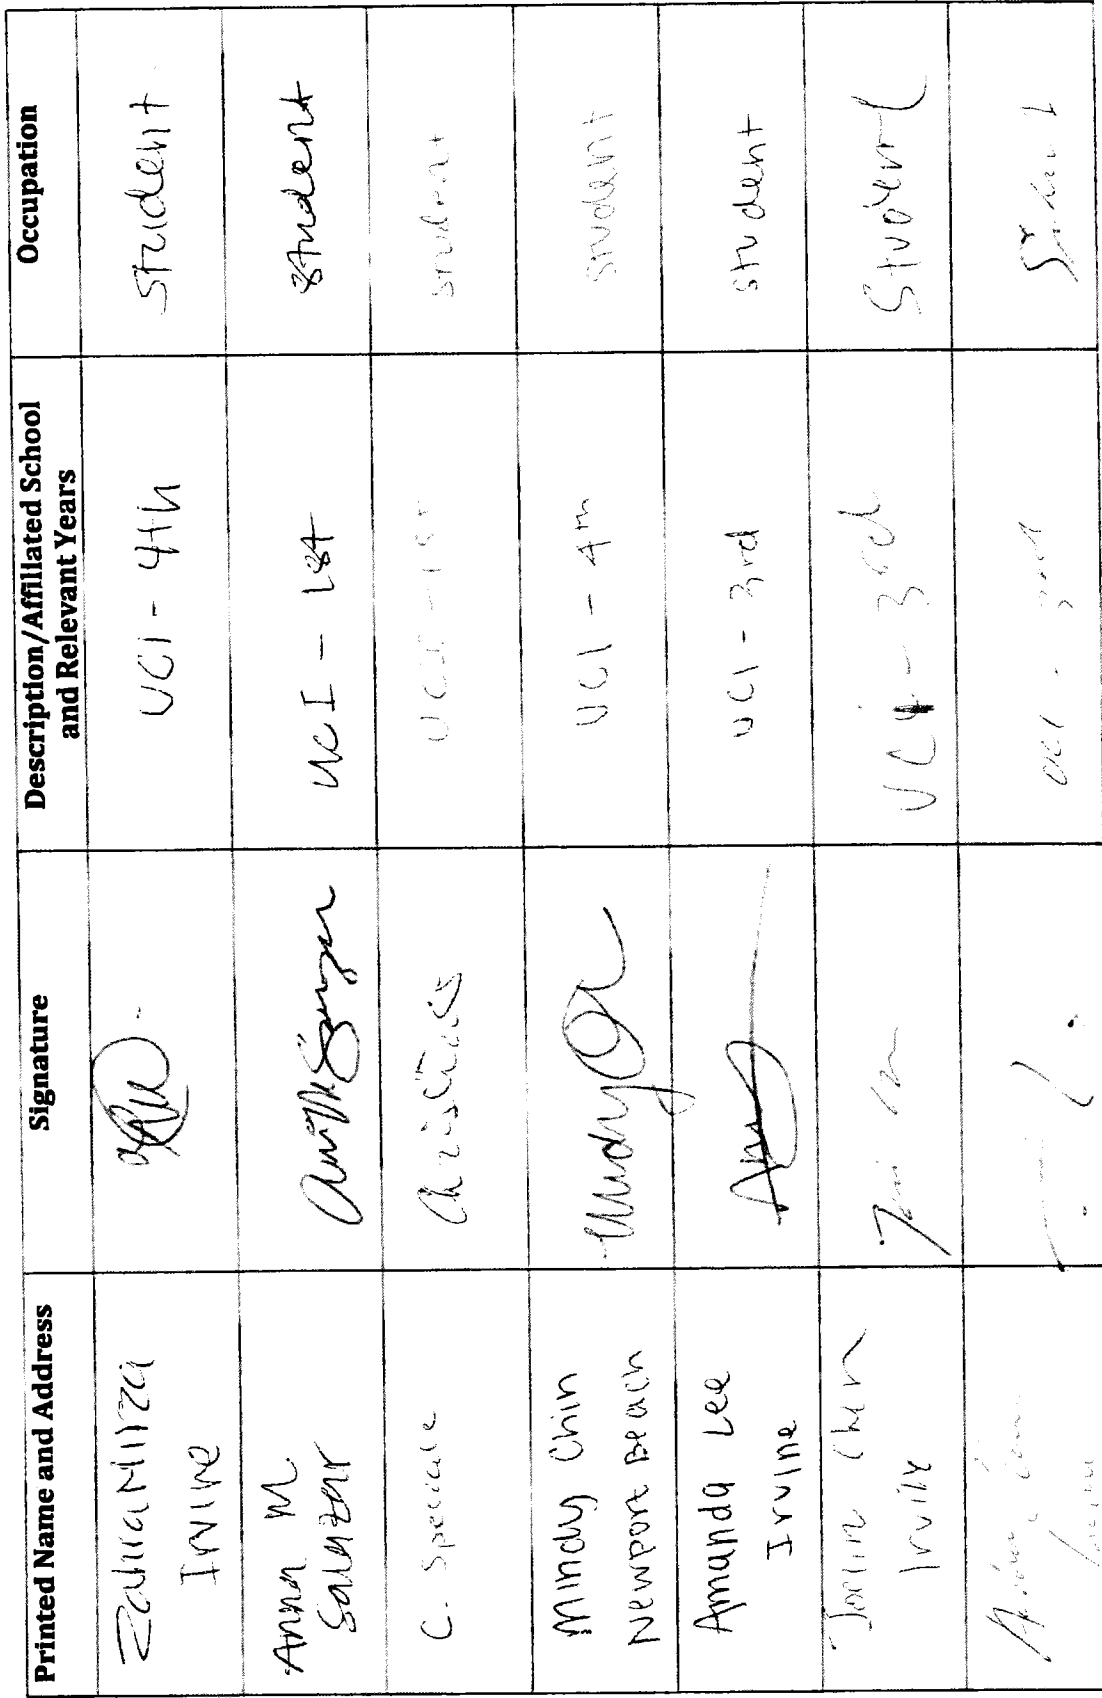 Printed Name and Address
Signature
Description/Affiliated School
and Relevant Years
Occupation
Zahra Mirza
Irvine
UCI - 4th
Student
Anna M
Salazar
UCI - 1st
Student
C. Speciale
UCI - 1st
Student
Mindy Chin
Newport Beach
Mindy
UCI - 4th
Student
Amanda Lee
Irvine
UCI - 3rd
student
Chen
Irvine
3rd
Student
UCI